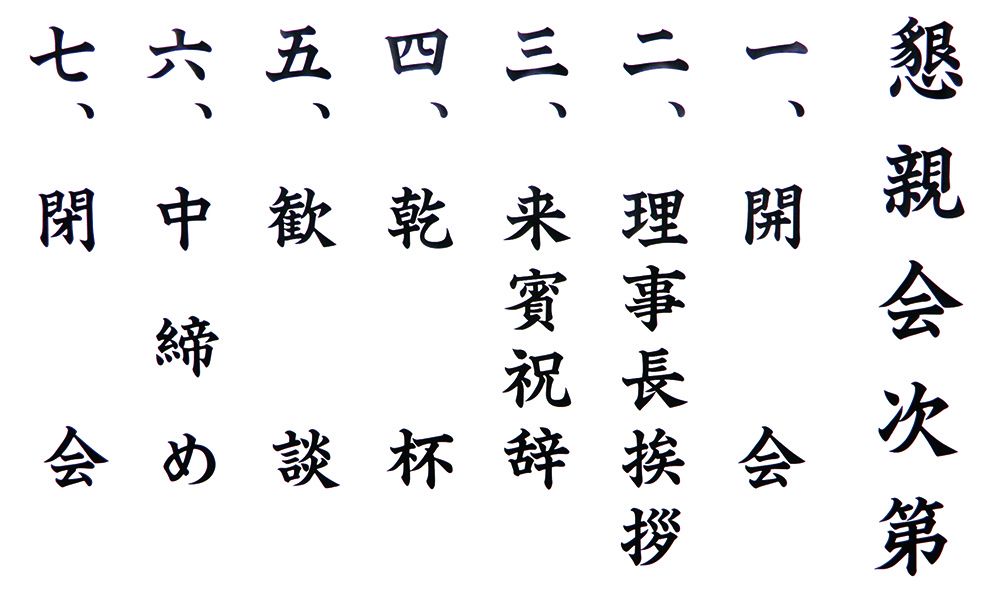 懇親会次第
一、開会
二、理事長挨拶
三、来賓祝辞
四、乾杯
五、歓談
六、中締め
七、閉会